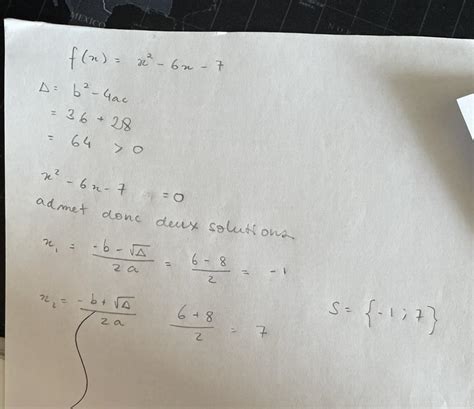 MEXICO
f(x) = x² - 6x - 7
Δ = b² - 4ac
= 36 + 28
= 64 > 0
x² - 6x - 7 = 0
admet donc deux solutions
x₁ = (-b - √Δ)/(2a) = (6 - 8)/2 = -1
x₂ = (-b + √Δ)/(2a) (6 + 8)/2 = 7
S = {-1 ; 7}